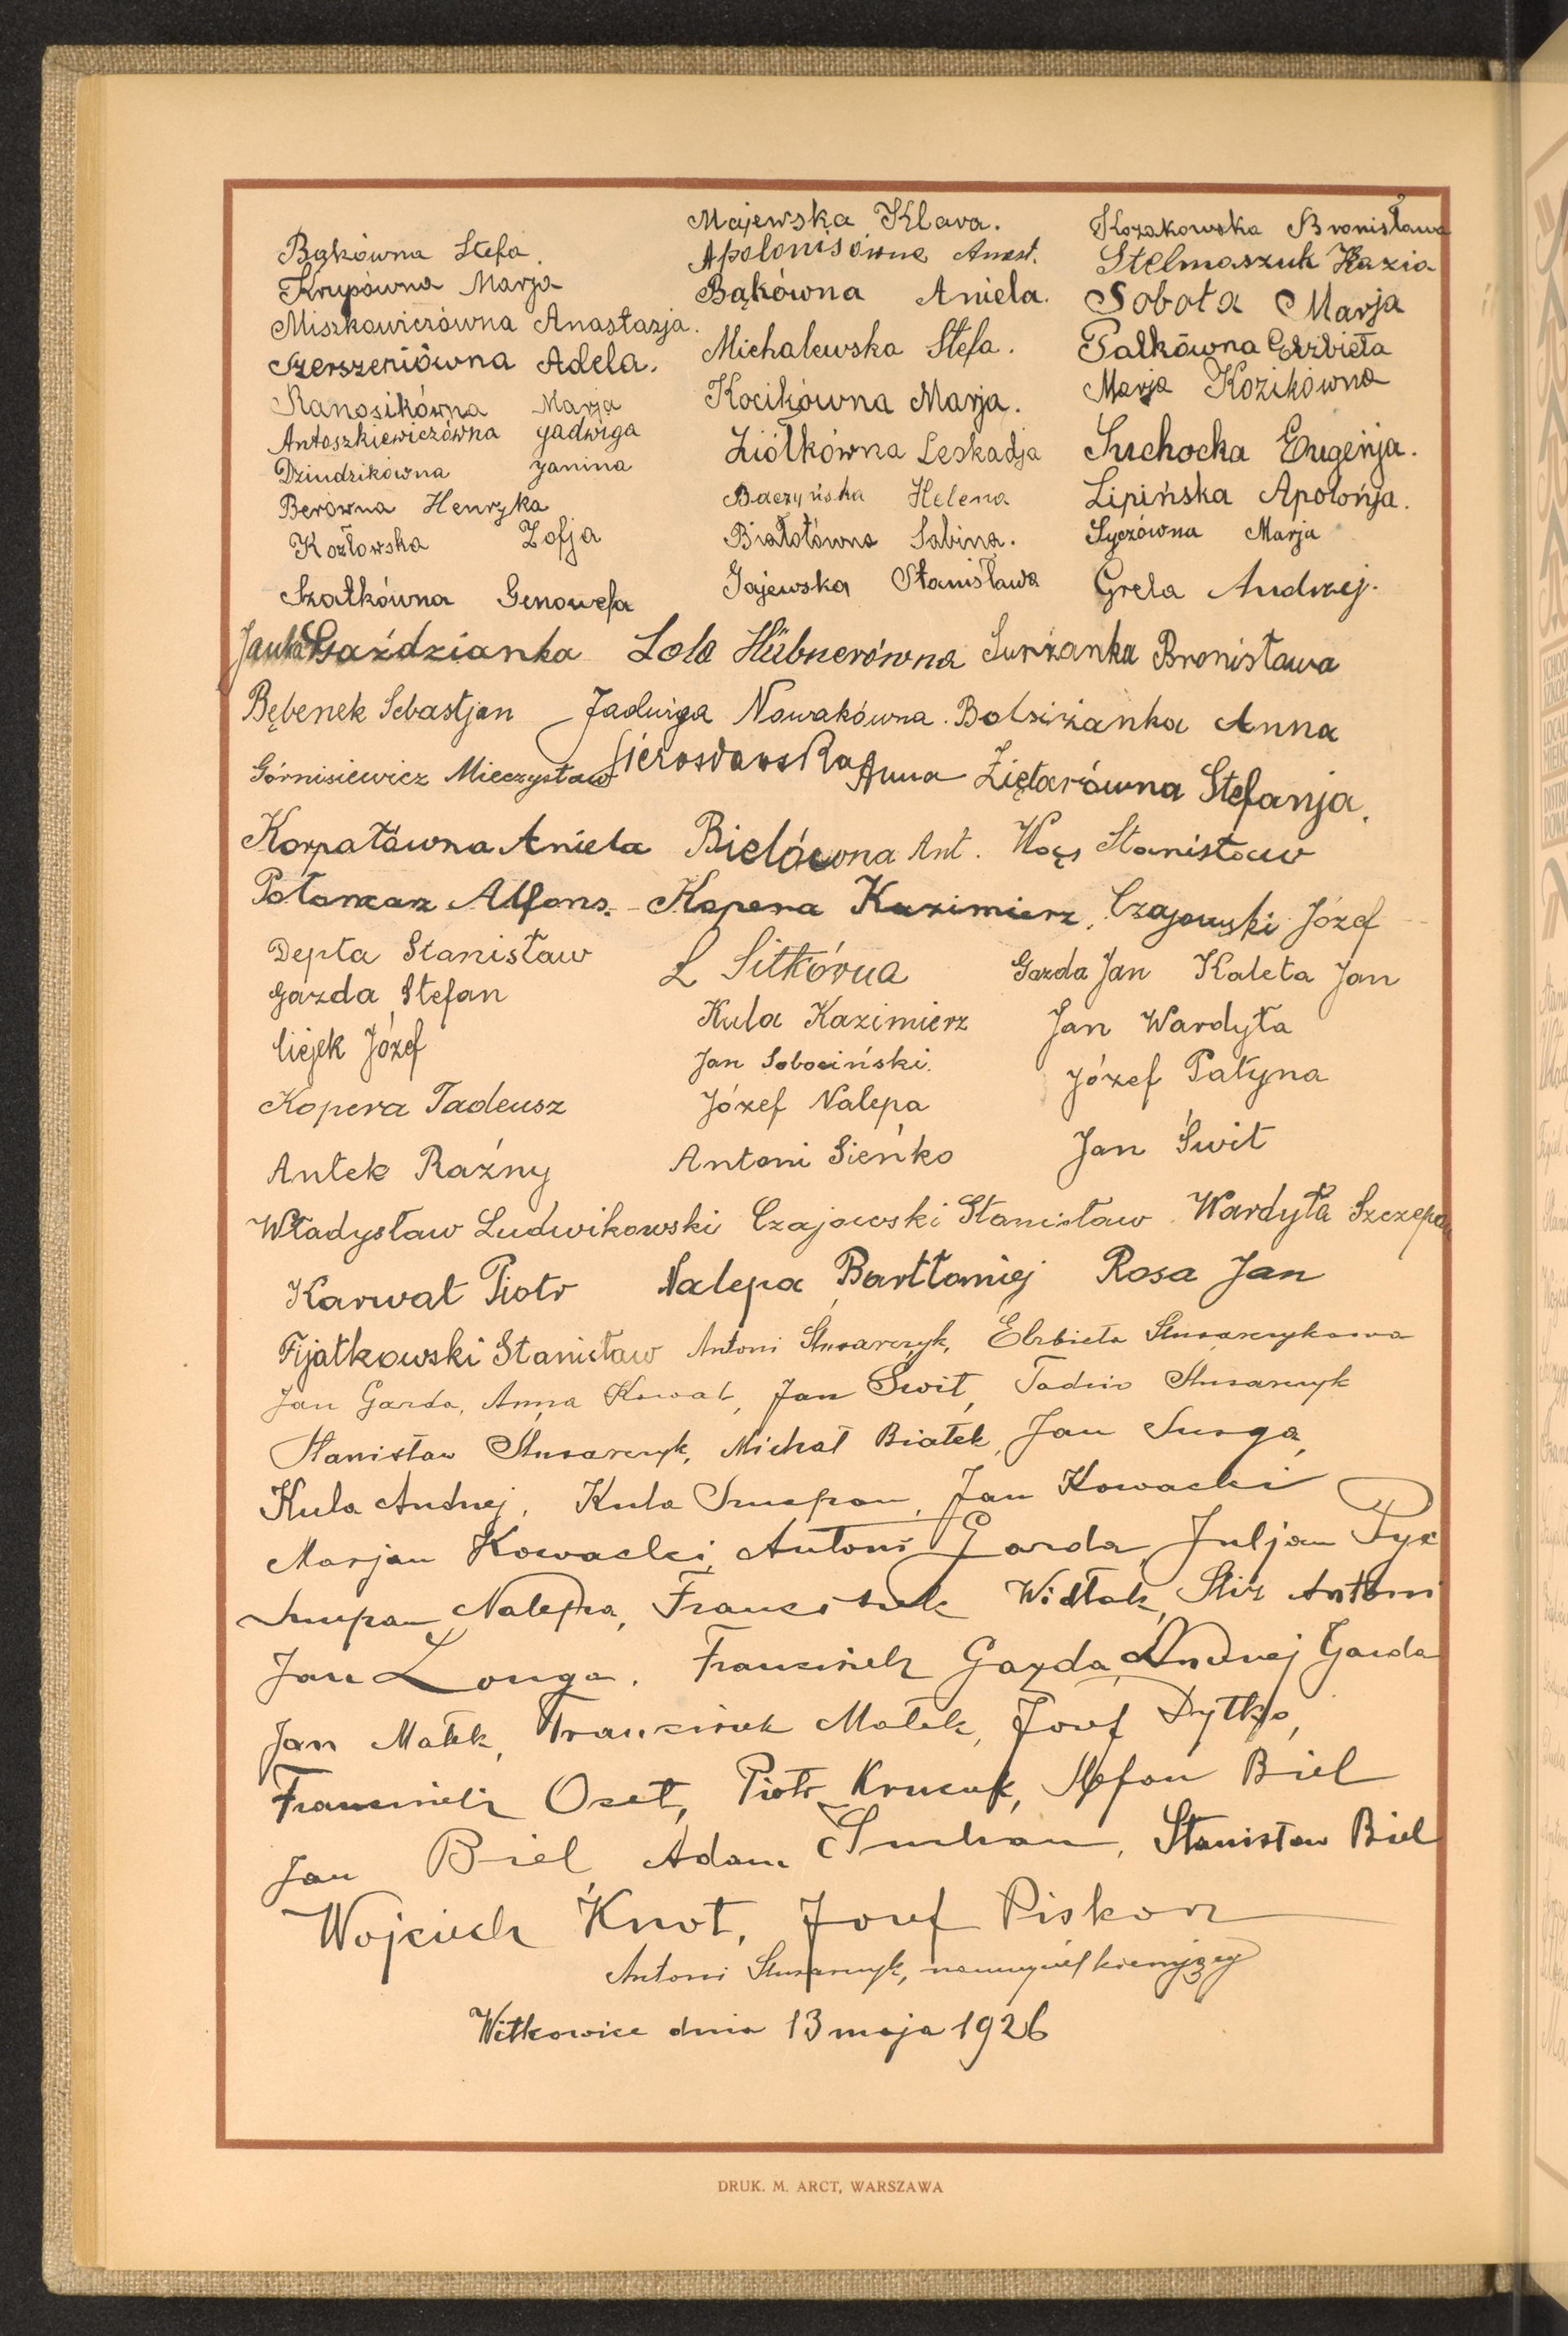 Majewska Klara. Kozakowska Bronisława
Bąkówna Stefa. Apolonisówna Anast. Stelmaszuk Kazia
Krupówna Marja Bąkówna Aniela. Sobota Marja
Miszkowiczówna Anastazja. Michalewska Stefa. Pałkówna Elżbieta
Szerszeniówna Adela. Kocikówna Marja. Marja Kozikówna
Ranosikówna Marja
Antoszkiewiczówna Jadwiga Ziółkówna Leokadja Suchocka Eugenja.
Dziudzikówna Janina Baczyńska Helena Lipińska Apolonja.
Berówna Henryka Białołówna Sabina. Syczówna Marja
Kozłowska Zofja Gajewska Stanisława Grela Andrzej.
Szałkówna Genowefa
Janka Gaździanka Lola Hübnerówna Surżanka Bronisława
Bębenek Sebastjan Jadwiga Nowakówna. Bolsiżanka Anna
Górnisiewicz Mieczysław Sierosławska Anna Ziętarówna Stefanja.
Korpałówna Aniela Bielówna Ant. Wąs Stanisław
Połomcar Alfons. Kopera Kazimierz, Czajowski Józef
Depta Stanisław L Sitkówna Gazda Jan Kaleta Jan
Gazda Stefan Kula Kazimierz Jan Wardyła
Ciejek Józef Jan Sobociński. Józef Patyna
Kopera Tadeusz Józef Nalepa
Antek Raźny Antoni Sieńko Jan Świt
Władysław Ludwikowski Czajowski Stanisław Wardyła Szczepan
Karwat Piotr Nalepa Bartłomiej Rosa Jan
Fijałkowski Stanisław Antoni Ślusarczyk, Elżbieta Ślusarczykowa
Jan Gazda, Anna Kowal, Jan Świt, Tadzio Ślusarczyk
Stanisław Ślusarczyk, Michał Białek, Jan Surga,
Kula Andrzej, Kula Szczepan, Jan Kowacki
Marjan Kowacki, Antoni Gazda, Juljan Pyx
Szczepan Nalepa, Franciszek Widłak, Śliż Antoni
Jan Longa. Franciszek Gazda, Andrzej Gazda
Jan Małek, Franciszek Małek, Józef Dytko,
Franciszek Oset, Piotr Kruczek, Stefan Biel
Jan Biel Adam Suchan, Stanisław Biel
Wojciech Knot, Józef Piskorz
Antoni Ślusarczyk, nauczyciel kierujący
Witkowice dnia 13 maja 1926
DRUK. M. ARCT, WARSZAWA